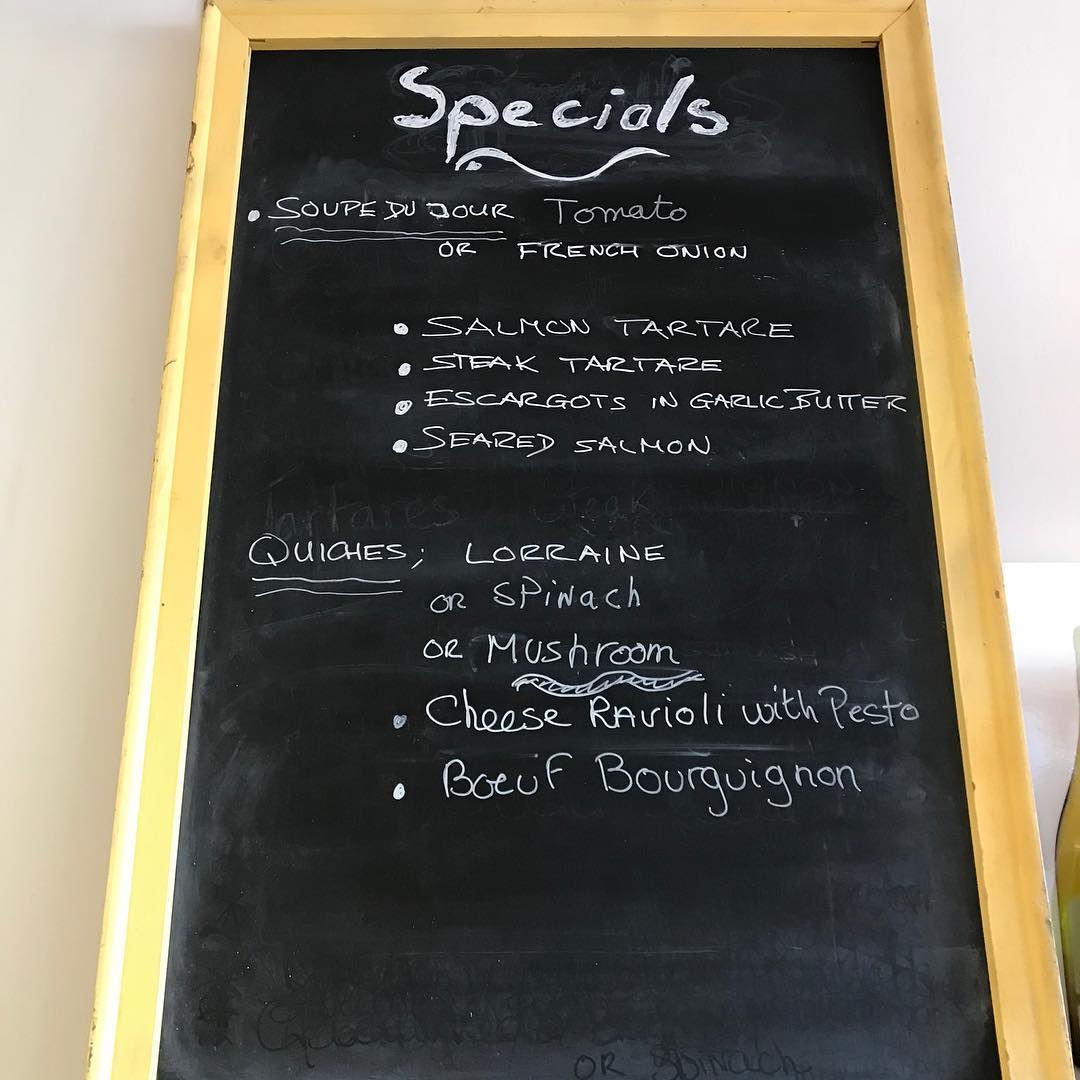 Specials
• SOUPE DU JOUR Tomato
OR FRENCH ONION
• SALMON TARTARE
• STEAK TARTARE
• ESCARGOTS IN GARLIC BUTTER
• SEARED SALMON
Tartares Steak
QUICHES; LORRAINE
OR SPiNach
OR MUshroom
• Cheese RAvioli with Pesto
• Boeuf Bourguignon
OR SPINach